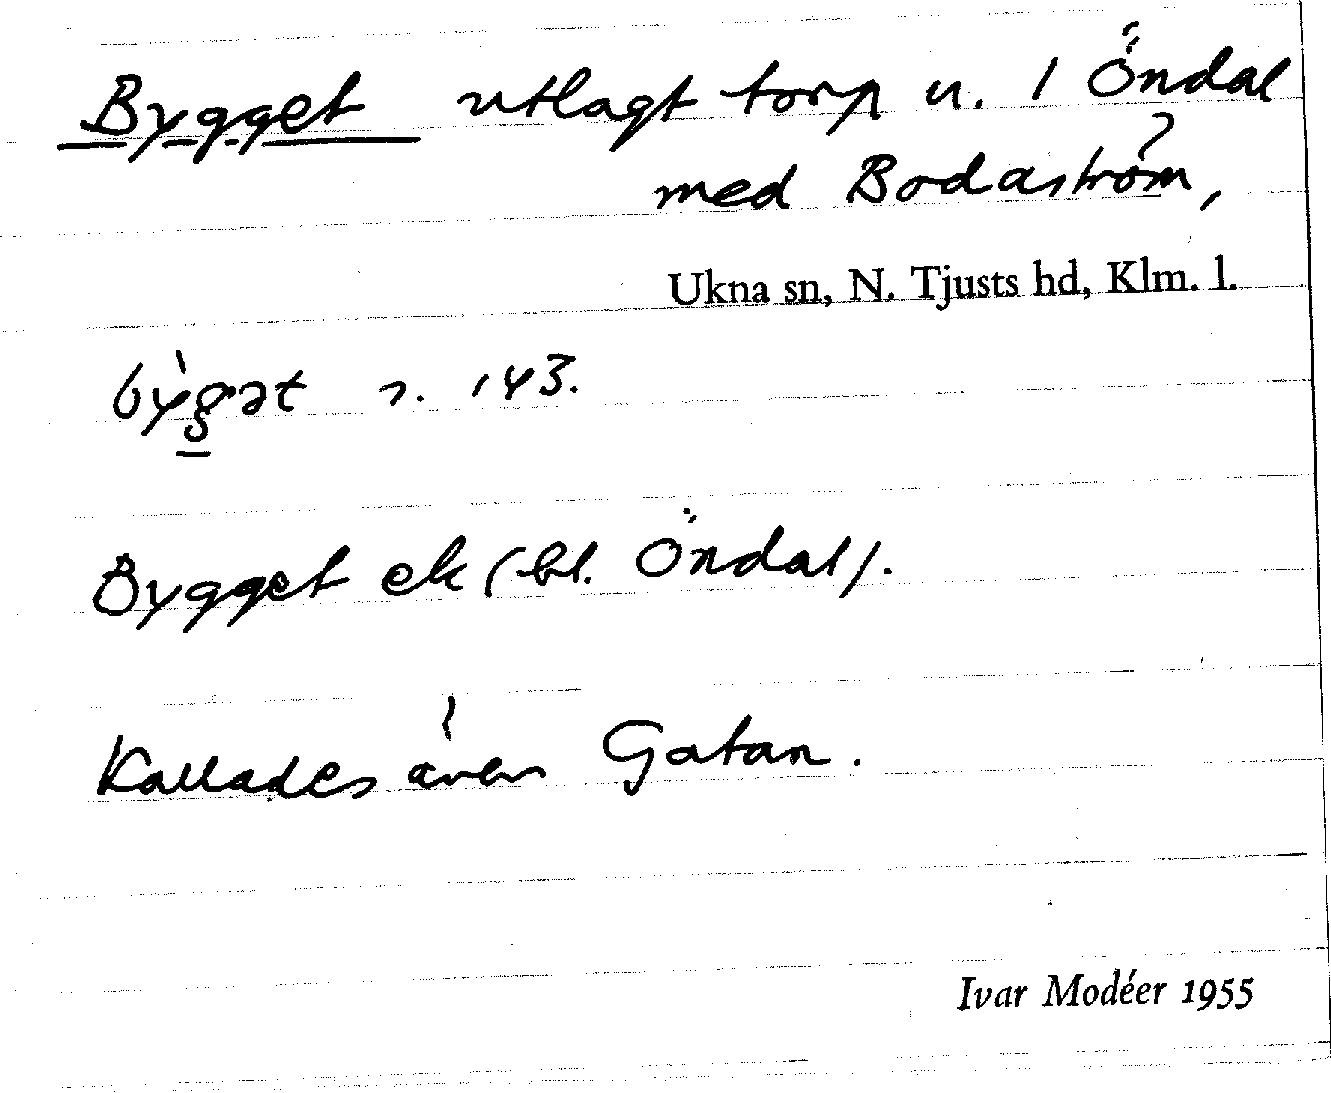 Bygget utlagt torp u. 1 Öndal
med Bodaström,
Ukna sn, N. Tjusts hd, Klm. l.
bỳgət 2. 143.
Bygget ek (bl. Öndal).
Kallades även Gatan.
Ivar Modéer 1955